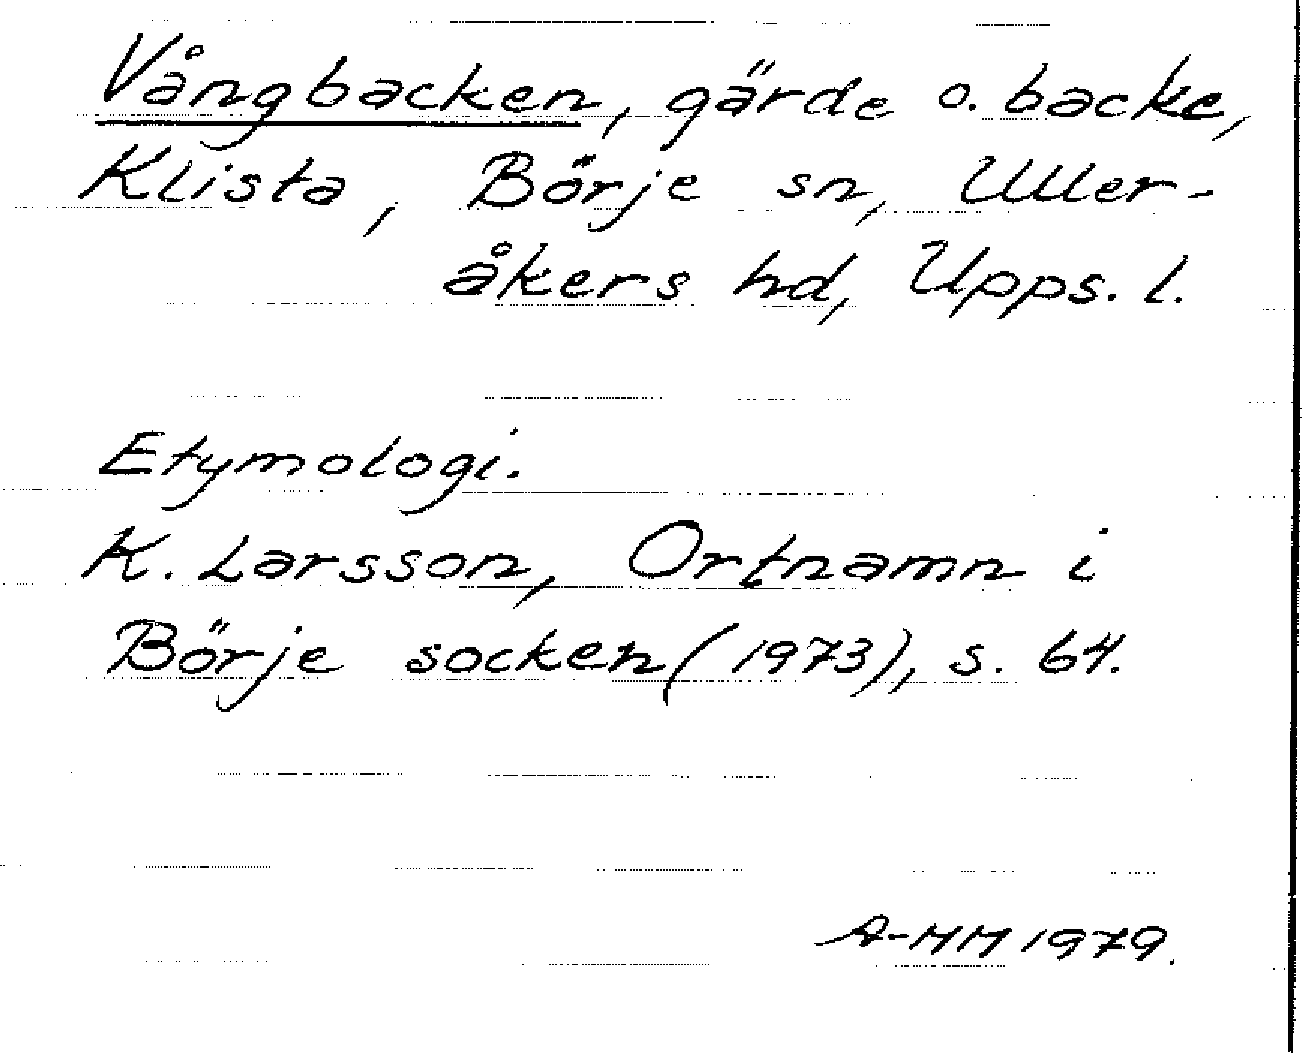 Vångbacken, gärde o. backe,
Klista, Börje sn, Uller-
åkers hd, Upps. l.
Etymologi.
K. Larsson, Ortnamn i
Börje socken (1973), s. 64.
A-MM 1979.